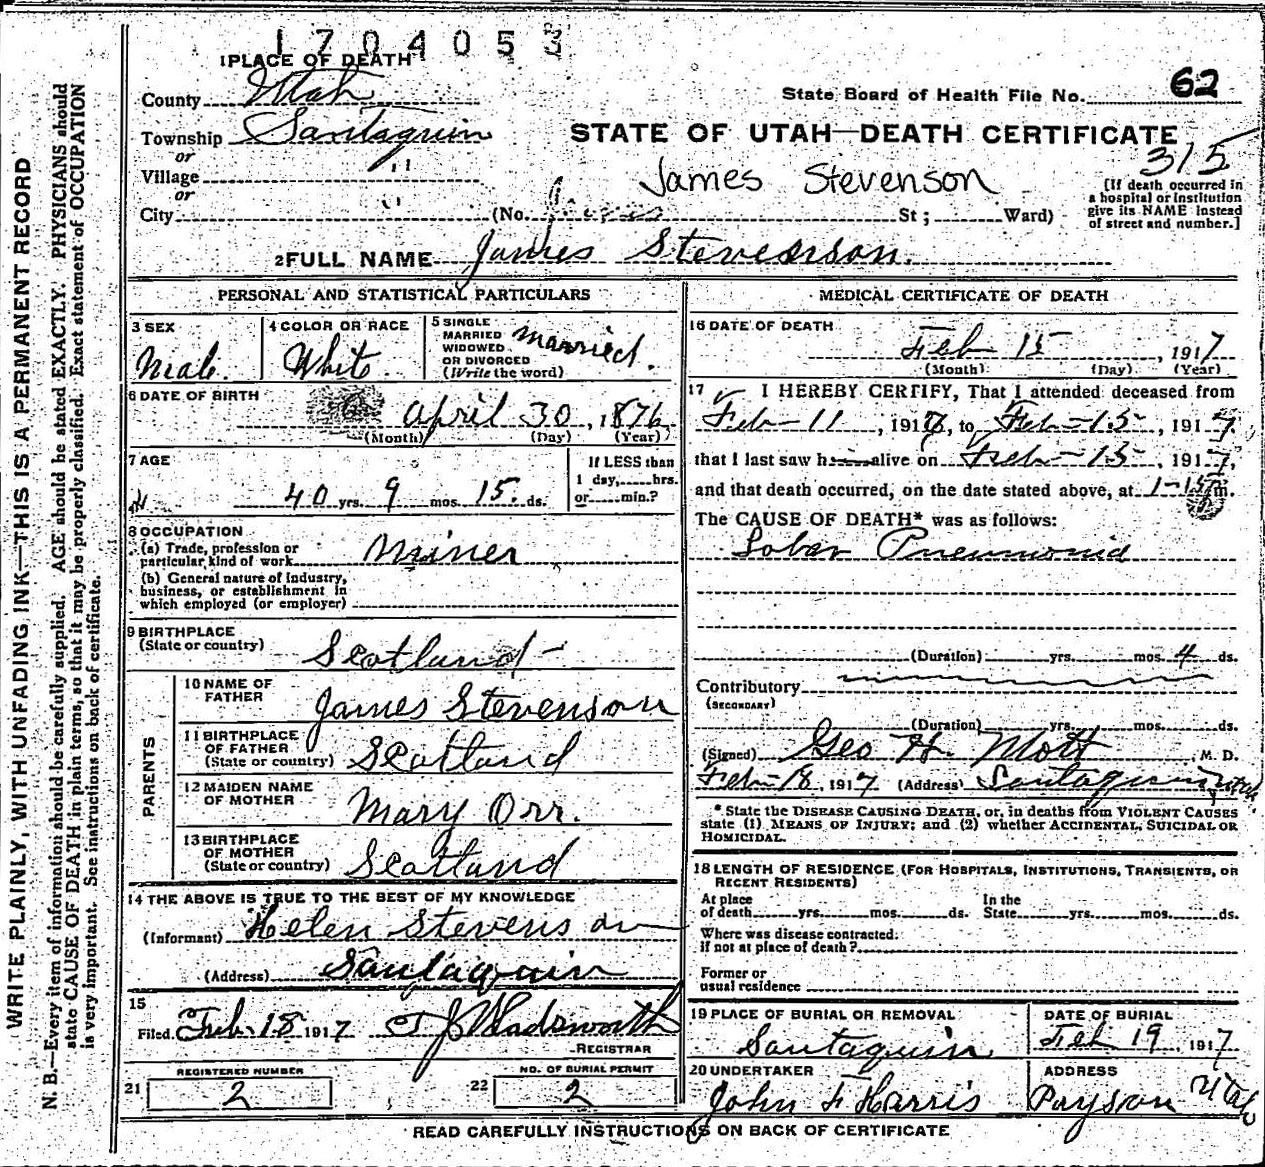 1704053
1 PLACE OF DEATH
County Utah
State Board of Health File No. 62
Township Santaquin
STATE OF UTAH—DEATH CERTIFICATE
315
or
Village " "
James Stevenson
or
City " (No. St; Ward)
[If death occurred in
a hospital or institution
give its NAME instead
of street and number.]
2 FULL NAME James Stevenson.
PERSONAL AND STATISTICAL PARTICULARS
3 SEX
Male.
4 COLOR OR RACE
White.
5 SINGLE
MARRIED
WIDOWED
OR DIVORCED
(Write the word)
Married.
6 DATE OF BIRTH
April 30, 1876
(Month) (Day) (Year)
7 AGE
40 yrs. 9 mos. 15. ds.
If LESS than
1 day, hrs.
or min.?
8 OCCUPATION
(a) Trade, profession or
particular kind of work Miner
(b) General nature of industry,
business, or establishment in
which employed (or employer)
9 BIRTHPLACE
(State or country) Scotland
PARENTS
10 NAME OF
FATHER James Stevenson
11 BIRTHPLACE
OF FATHER
(State or country) Scotland
12 MAIDEN NAME
OF MOTHER Mary Orr.
13 BIRTHPLACE
OF MOTHER
(State or country) Scotland
14 THE ABOVE IS TRUE TO THE BEST OF MY KNOWLEDGE
(Informant) Helen Stevenson
(Address) Santaquin
15
Filed Feb 18 1917 Wadsworth
REGISTRAR
REGISTERED NUMBER
21 2
NO. OF BURIAL PERMIT
22 2
MEDICAL CERTIFICATE OF DEATH
16 DATE OF DEATH
Feb 15, 1917
(Month) (Day) (Year)
17 I HEREBY CERTIFY, That I attended deceased from
Feb-11, 1917, to Feb-15, 1917,
that I last saw h alive on Feb-15, 1917,
and that death occurred, on the date stated above, at 1-15 m.
The CAUSE OF DEATH* was as follows:
Lobar Pneumonia
(Duration) yrs. mos. 4 ds.
Contributory
(SECONDARY)
(Duration) yrs. mos. ds.
(Signed) Geo H. Mott, M. D.
Feb-18, 1917 (Address) Santaquin, Utah
* State the DISEASE CAUSING DEATH, or, in deaths from VIOLENT CAUSES
state (1) MEANS OF INJURY; and (2) whether ACCIDENTAL, SUICIDAL OR
HOMICIDAL.
18 LENGTH OF RESIDENCE (FOR HOSPITALS, INSTITUTIONS, TRANSIENTS, OR
RECENT RESIDENTS)
At place
of death yrs. mos. ds.
In the
State yrs. mos. ds.
Where was disease contracted.
if not at place of death?
Former or
usual residence
19 PLACE OF BURIAL OR REMOVAL
Santaquin
DATE OF BURIAL
Feb 19, 1917
20 UNDERTAKER
John F Harris
ADDRESS
Payson Utah
READ CAREFULLY INSTRUCTIONS ON BACK OF CERTIFICATE
WRITE PLAINLY, WITH UNFADING INK—THIS IS A PERMANENT RECORD
N. B.—Every item of information should be carefully supplied. AGE should be stated EXACTLY. PHYSICIANS should
state CAUSE OF DEATH in plain terms, so that it may be properly classified. Exact statement of OCCUPATION
is very important. See instructions on back of certificate.